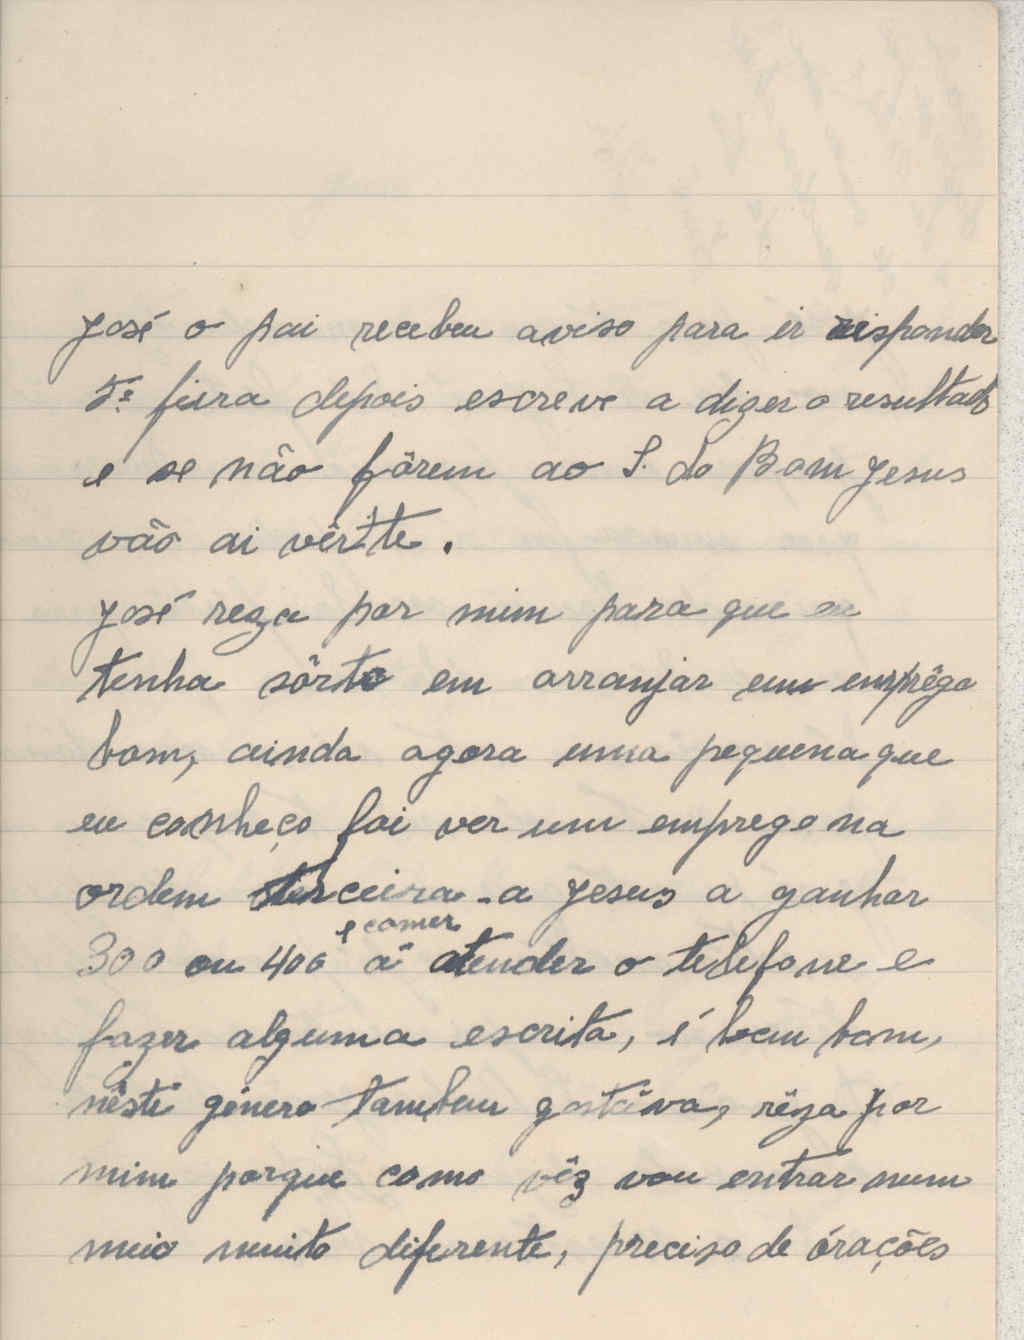 José o pai recebeu aviso para ir responder
5ª feira depois escreve a dizer o resultado
e se não fôrem ao S. do Bom Jesus
vão ai vêr-te.
José reza por mim para que eu
tenha sôrte em arranjar um emprêgo
bom, ainda agora uma pequena que
eu conheço foi ver um emprego na
ordem terceira - a Jesus a ganhar
e comer
300 ou 400 a atender o telefone e
fazer alguma escrita, é bem bom,
nêste género tambem gostáva, réza por
mim porque como vêz vou entrar num
meio muito diferente, preciso de órações